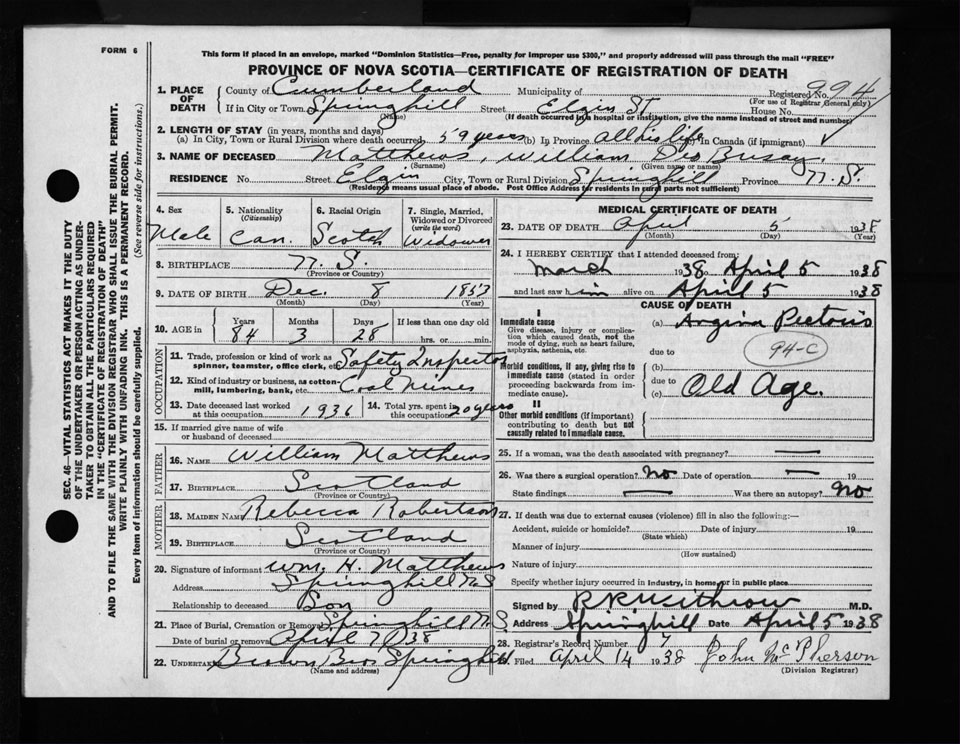 FORM 6
This form if placed in an envelope, marked "Dominion Statistics—Free, penalty for improper use $300," and properly addressed will pass through the mail "FREE"
PROVINCE OF NOVA SCOTIA—CERTIFICATE OF REGISTRATION OF DEATH
1. PLACE OF DEATH County of Cumberland Municipality of Registered No. 994
(For use of Registrar General only)
If in City or Town Springhill Street Elgin St House No.
(Name) (If death occurred in a hospital or institution, give the name instead of street and number)
2. LENGTH OF STAY (in years, months and days)
(a) In City, Town or Rural Division where death occurred, 59 years (b) In Province all his life (c) In Canada (if immigrant)
3. NAME OF DECEASED Matthews, William
(Surname) (Given name or names)
RESIDENCE No. Street Elgin City, Town or Rural Division Springhill Province N.S.
(Residence means usual place of abode. Post Office Address for residents in rural parts not sufficient)
4. Sex Male
5. Nationality (Citizenship) Can.
6. Racial Origin Scotch
7. Single, Married, Widowed or Divorced (write the word) Widower
8. BIRTHPLACE N.S.
(Province or Country)
9. DATE OF BIRTH Dec. 8 1853
(Month) (Day) (Year)
10. AGE in Years 84 Months 3 Days 28 If less than one day old hrs. or min.
OCCUPATION
11. Trade, profession or kind of work as spinner, teamster, office clerk, etc. Safety Inspector
12. Kind of industry or business, as cotton-mill, lumbering, bank, etc. Coal Mines
13. Date deceased last worked at this occupation 1936
14. Total yrs. spent in this occupation 20 years
15. If married give name of wife or husband of deceased
FATHER
16. NAME William Matthews
17. BIRTHPLACE Scotland
(Province or Country)
MOTHER
18. MAIDEN NAME Rebecca Robertson
19. BIRTHPLACE Scotland
(Province or Country)
20. Signature of informant Wm. H. Matthews
Address Springhill N.S
Relationship to deceased Son
21. Place of Burial, Cremation or Removal Springhill N.S
Date of burial or removal April 7 1938
22. UNDERTAKER Brown Bros Springhill
(Name and address)
MEDICAL CERTIFICATE OF DEATH
23. DATE OF DEATH April 5 1938
(Month) (Day) (Year)
24. I HEREBY CERTIFY that I attended deceased from:
March 1938 to April 5 1938
and last saw him alive on April 5 1938
CAUSE OF DEATH
I
Immediate cause
Give disease, injury or complication which caused death, not the mode of dying, such as heart failure, asphyxia, asthenia, etc.
(a) Angina Pectoris
94-C
due to
Morbid conditions, if any, giving rise to immediate cause (stated in order proceeding backwards from immediate cause).
(b)
due to
(c) Old Age.
II
Other morbid conditions (if important) contributing to death but not causally related to immediate cause.
25. If a woman, was the death associated with pregnancy? —
26. Was there a surgical operation? No Date of operation — 19
State findings — Was there an autopsy? No
27. If death was due to external causes (violence) fill in also the following:—
Accident, suicide or homicide? Date of injury 19
(State which)
Manner of injury
(How sustained)
Nature of injury
Specify whether injury occurred in industry, in home, or in public place
Signed by M.D.
Address Springhill Date April 5 1938
28. Registrar's Record Number 7
Filed April 14 1938 John McPherson
(Division Registrar)
SEC. 46—VITAL STATISTICS ACT MAKES IT THE DUTY
OF THE UNDERTAKER OR PERSON ACTING AS UNDER-
TAKER TO OBTAIN ALL THE PARTICULARS REQUIRED
IN THE "CERTIFICATE OF REGISTRATION OF DEATH"
AND TO FILE THE SAME WITH THE DIVISION REGISTRAR WHO SHALL ISSUE THE BURIAL PERMIT.
WRITE PLAINLY WITH UNFADING INK. THIS IS A PERMANENT RECORD.
Every item of information should be carefully supplied. (See reverse side for instructions.)